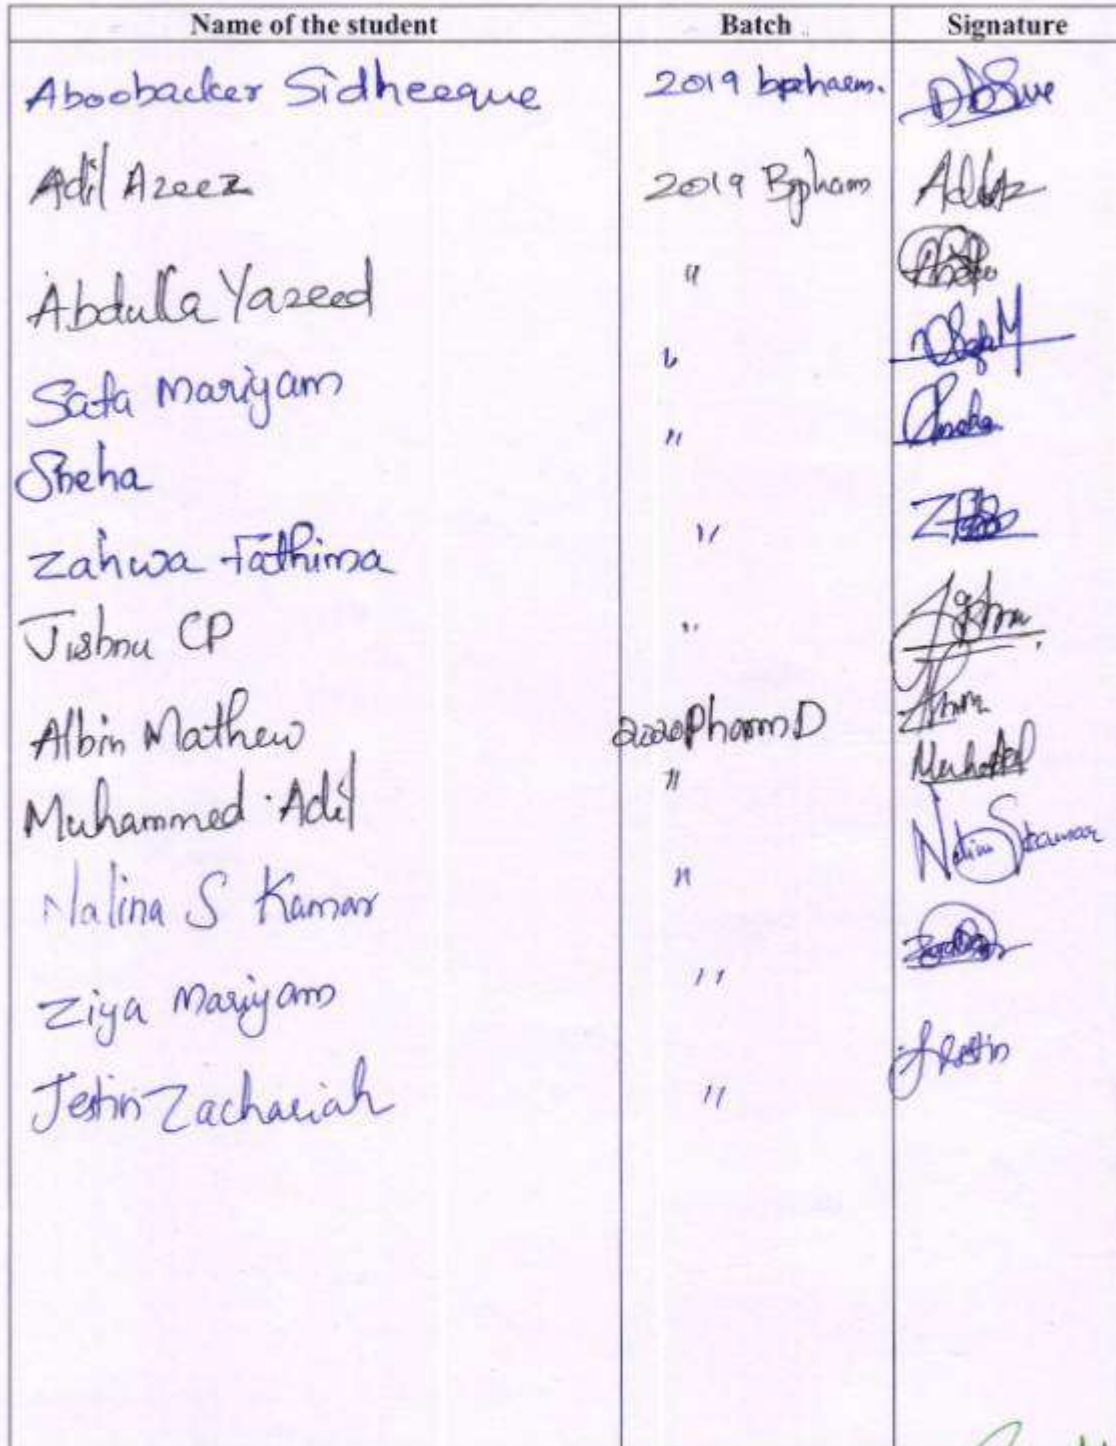 Name of the student Batch Signature
Aboobacker Sidheeque 2019 bpharm.
Adil Azeez 2019 Bpham
Abdulla Yazeed "
Safa Mariyam "
Sneha "
Zahwa Fathima "
Jishnu CP "
Albin Mathew 2020 Pharm D
Muhammed Adil "
Nalina S Kumar "
Ziya Mariyam "
Jestin Zachariah "